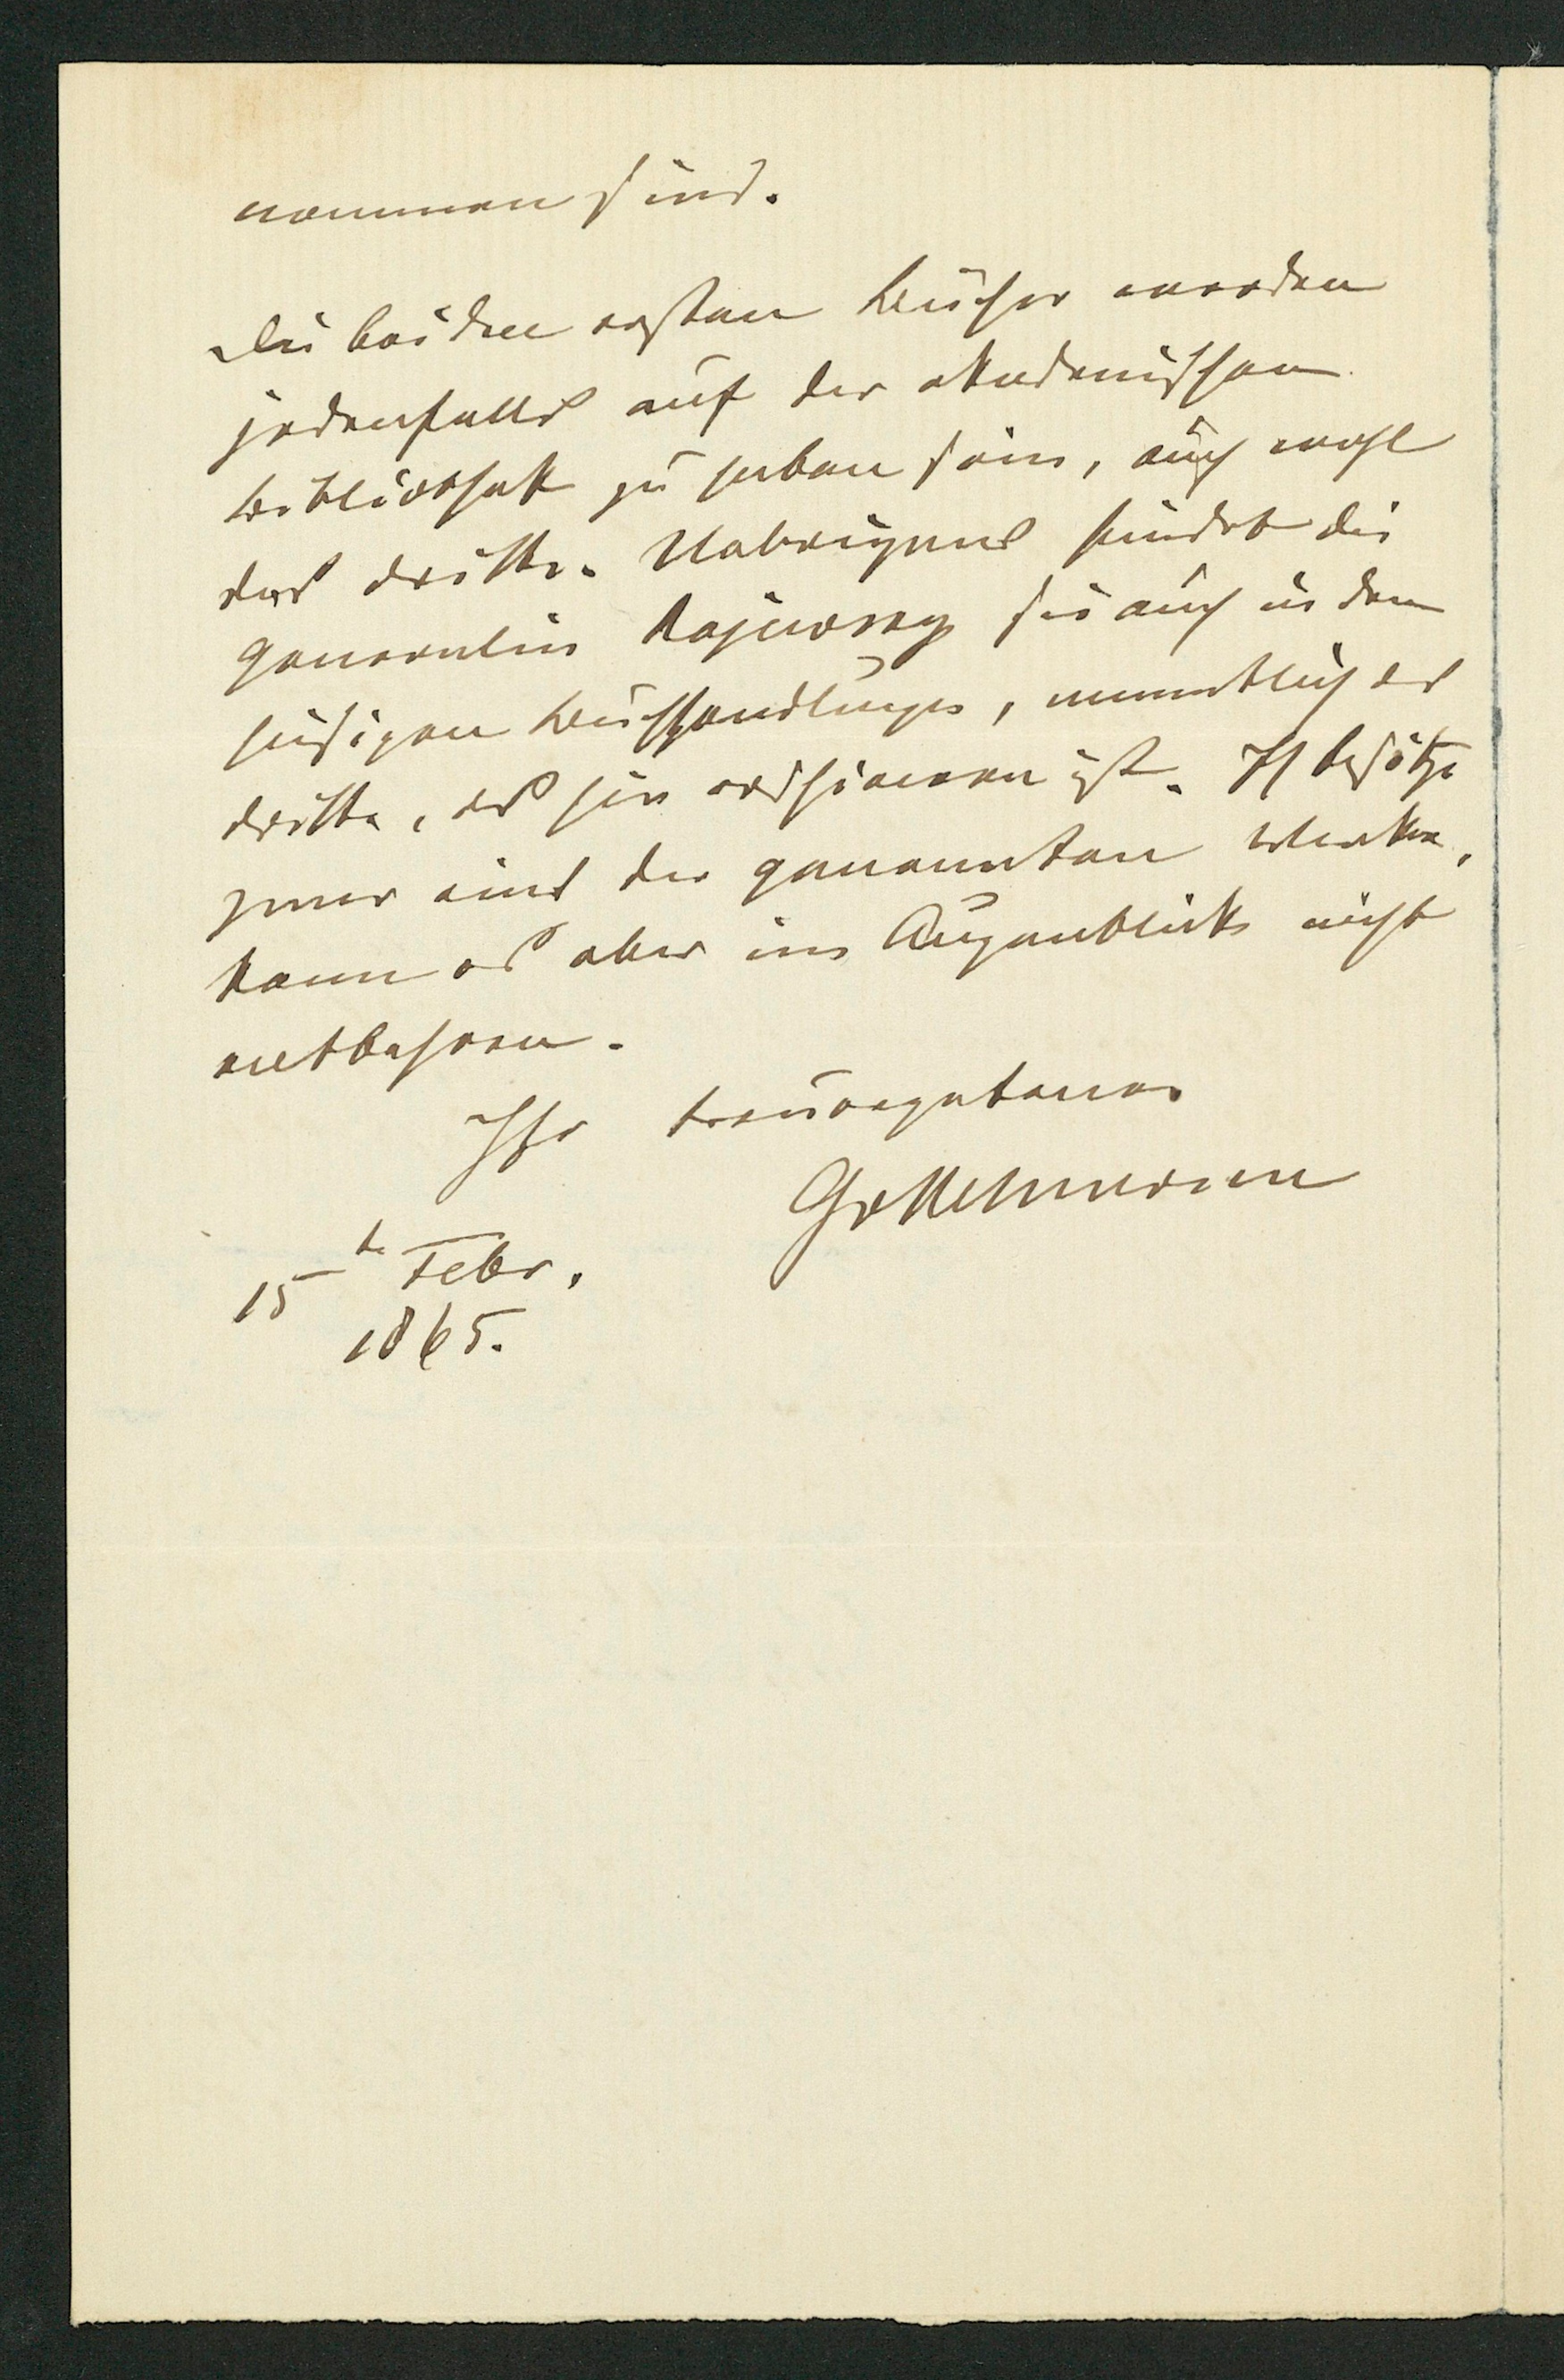 nommen sind.
Die beiden ersten Bücher werden
jedenfalls auf der akademischen
Bibliothek zu haben sein, auch wohl
das dritte. Uebrigens findet die
Generalin sie auch in den
hiesigen Buchhandlungen, namentlich das
dritte, das hier erschienen ist. Ich besitze
zwar eins der genannten Werke,
kann es aber im Augenblick nicht
entbehren.
Ihr treuergebener
15 t. Febr.
1865.